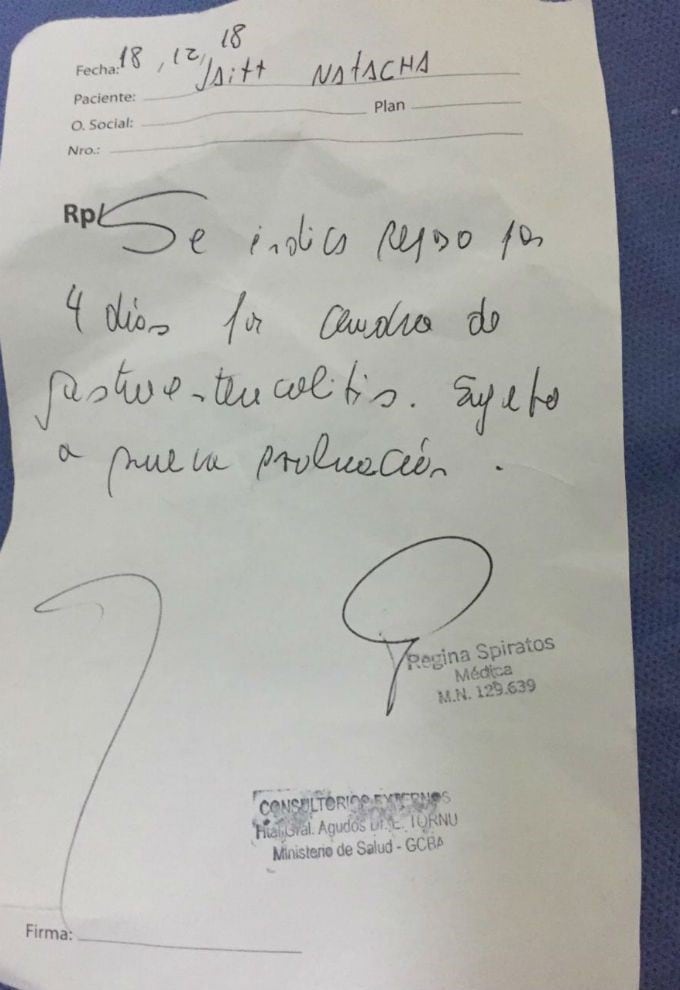 Fecha: 18, 12, 18
Paciente: Jaitt NATACHA
O. Social: Plan
Nro.:
Rp/ Se indica reposo por
4 días por cuadro de
gastroenterocolitis. Sujeto
a nueva evaluación.
Regina Spiratos
Médica
M.N. 129.639
CONSULTORIOS EXTERNOS
Htal. Gral. Agudos Dr. E. TORNU
Ministerio de Salud - GCBA
Firma: